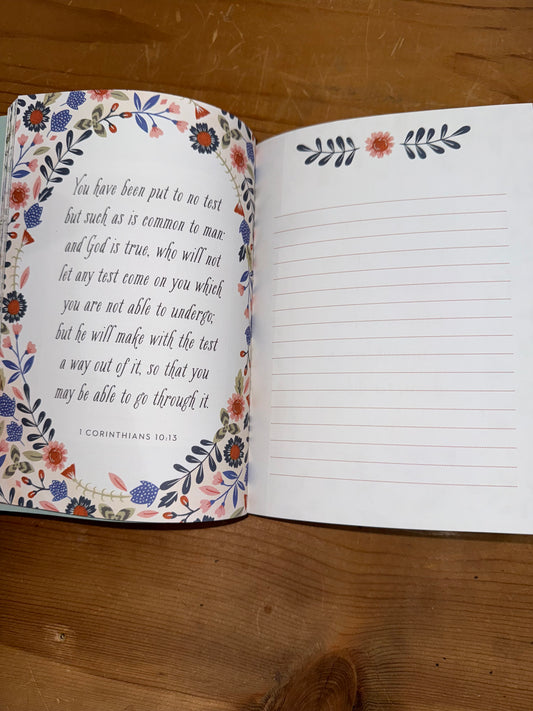 You have been put to no test
but such as is common to man:
and God is true, who will not
let any test come on you which
you are not able to undergo;
but he will make with the test
a way out of it, so that you
may be able to go through it.
1 CORINTHIANS 10:13